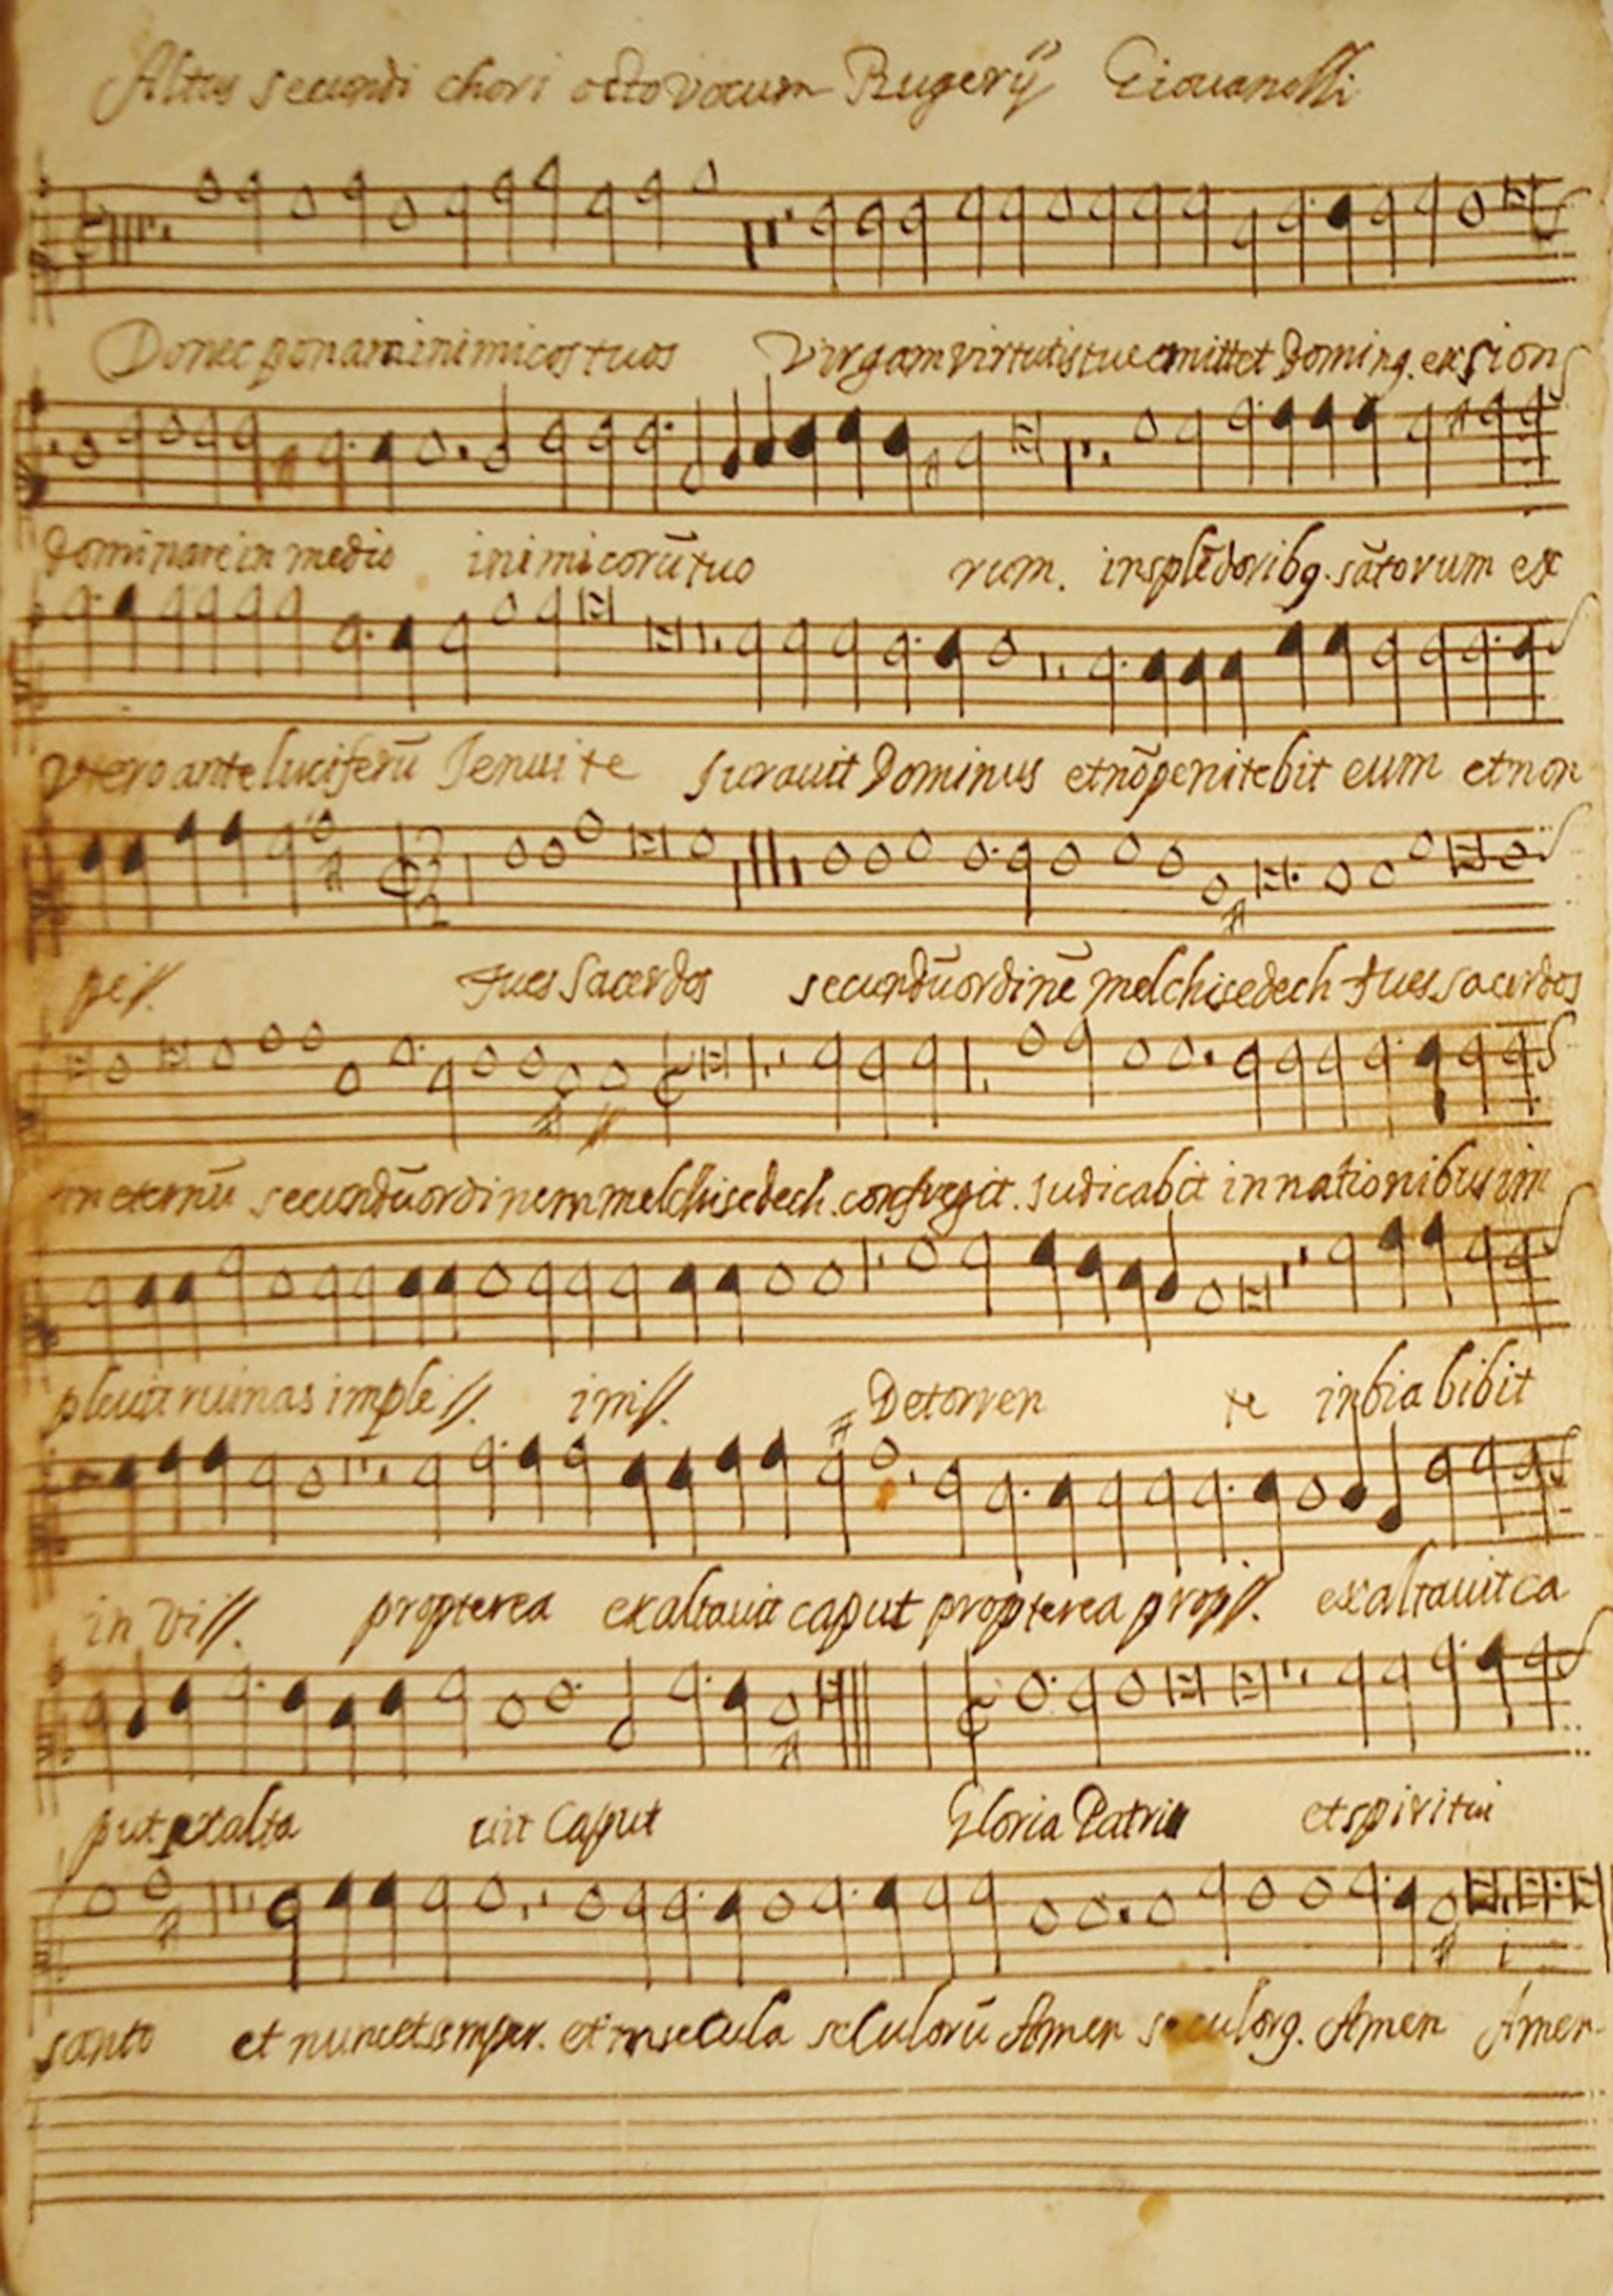 Altus secundi chori octo vocum Rugerij Giovanelli
Donec ponam inimicos tuos Virgam virtutis tue emittet Doming. ex sion
dominare in medio inimicorū tuo rum. in splēdoribg. sātorum ex
Vtero ante luciferū Genui te Juravit Dominus et nō penitebit eum et non
pe//. Tu es Sacerdos secundū ordinē melchisedech Tu es sacerdos
in eternū secundū ordinem melchisedech. confregit. Judicabit in nationibus im
plevit ruinas imple//. im//. De torren te in bia bibit
in Vi//. propterea exaltavit caput propterea prop//. exaltavit ca
put exalta vit Caput Gloria Patri et spiritui
santo et nunc et semper. et in secula seculorū Amen seculorg. Amen Amen